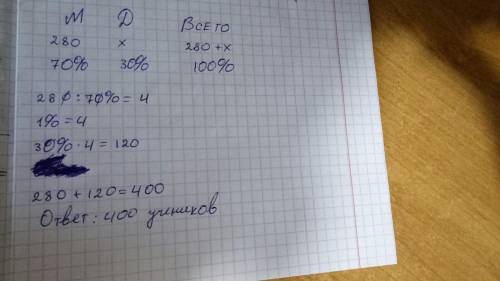 М Д Всего
280 x 280 + x
70% 30% 100%
280 : 70% = 4
1% = 4
30% · 4 = 120
280 + 120 = 400
Ответ: 400 учиников